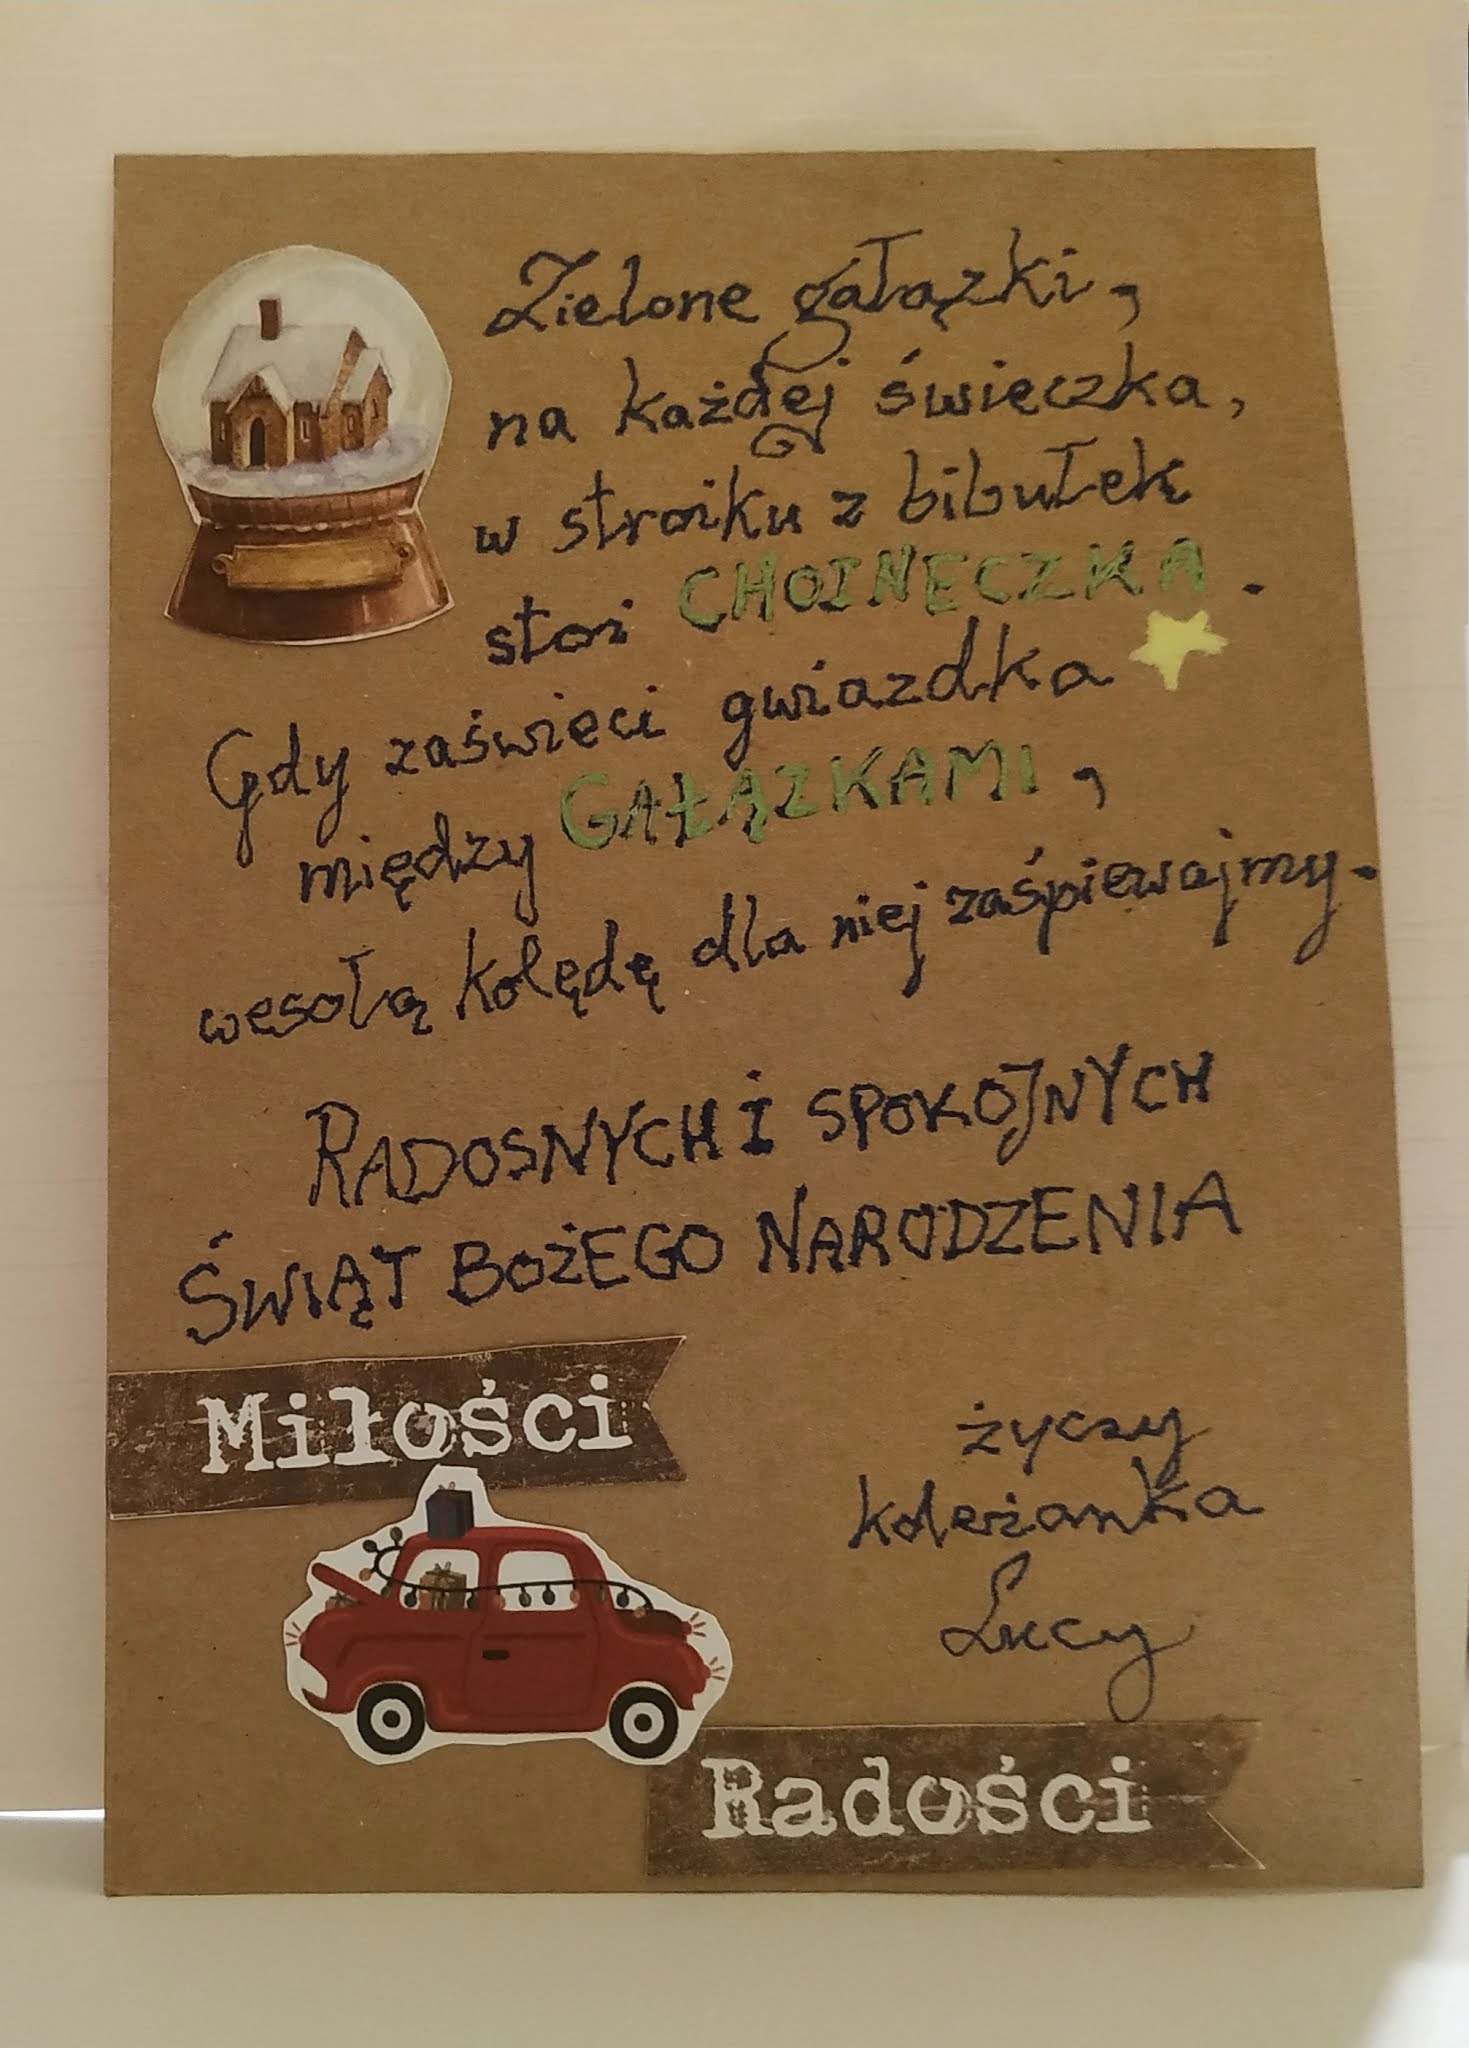 Zielone gałązki,
na każdej świeczka,
w stroiku z bibułek
stoi CHOINECZKA.
Gdy zaświeci gwiazdka
między GAŁĄZKAMI,
wesołą kolędę dla niej zaśpiewajmy.
RADOSNYCH I SPOKOJNYCH
ŚWIĄT BOŻEGO NARODZENIA
Miłości
życzy
koleżanka
Lucy
Radości